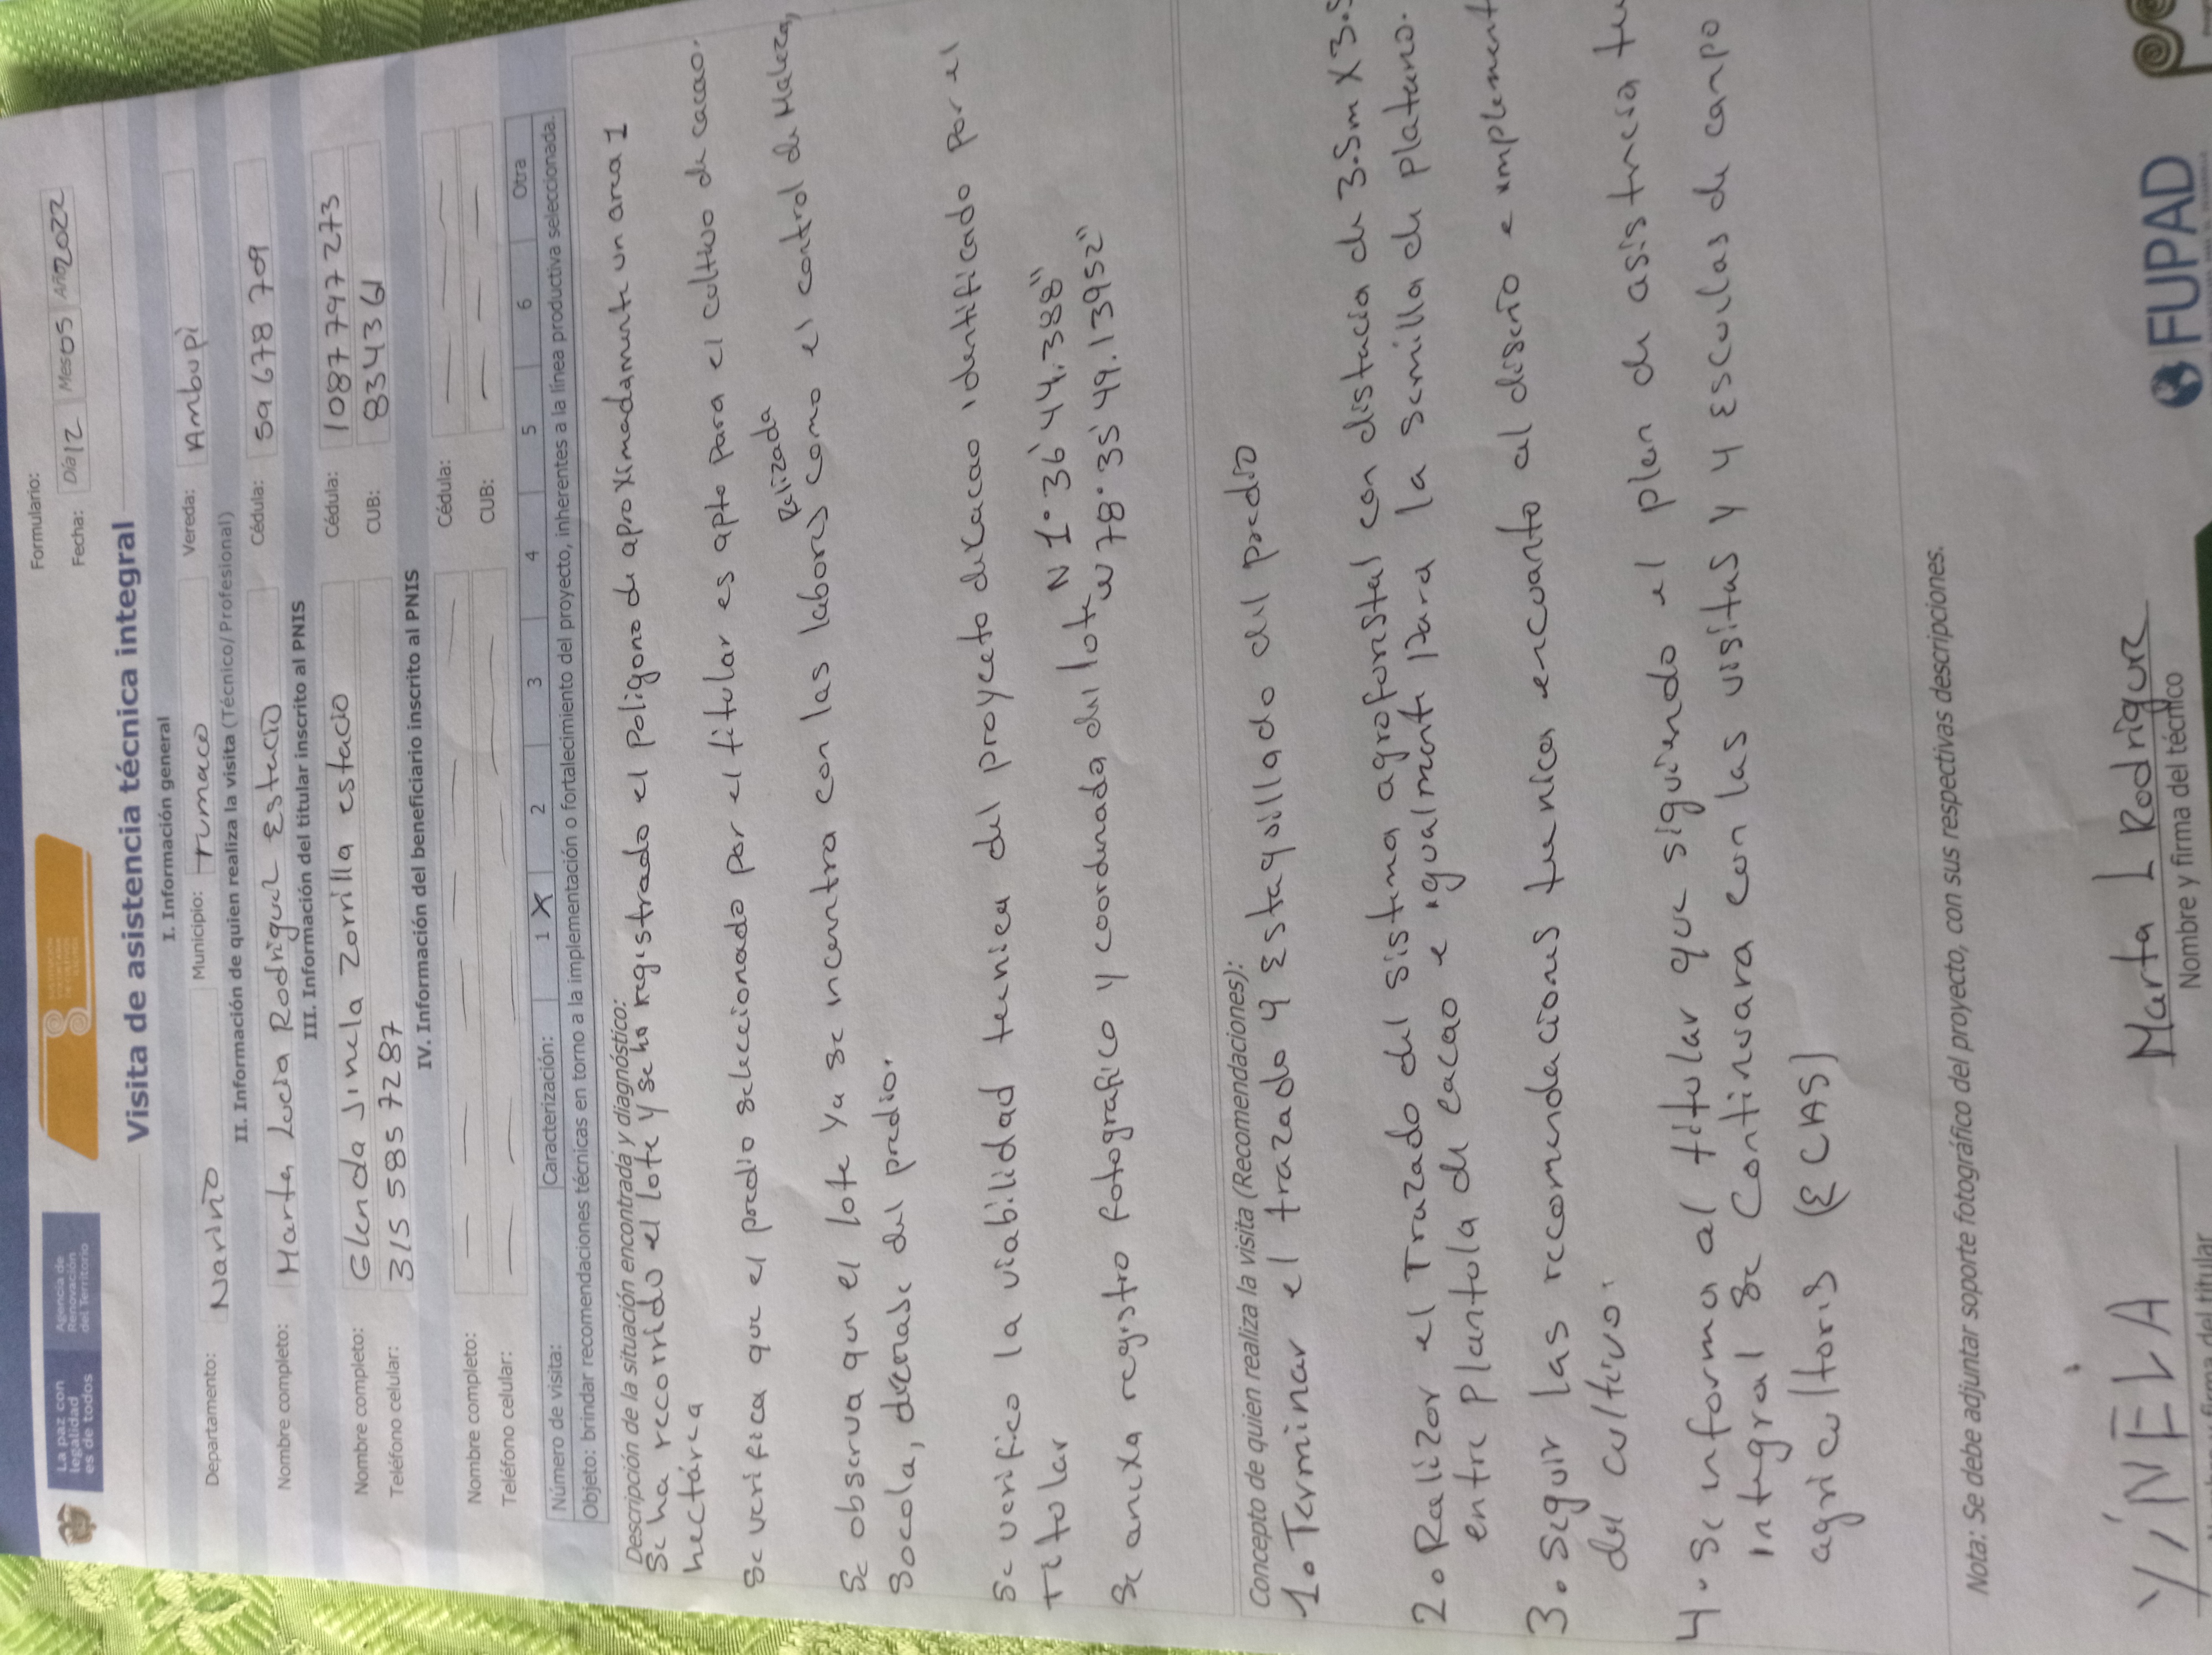 La paz con
legalidad
es de todos
Agencia de
Renovación
del Territorio
Formulario:
Fecha: Día 12 Mes 05 Año 2022
Visita de asistencia técnica integral
I. Información general
Departamento: Nariño Municipio: Tumaco Vereda: Ambupi
II. Información de quien realiza la visita (Técnico/ Profesional)
Nombre completo: Marta Lucia Rodriguez Estacio Cédula: 59 678 709
III. Información del titular inscrito al PNIS
Nombre completo: Glenda Jinela Zorrilla estacio Cédula: 1087797273
Teléfono celular: 315 585 7287 CUB: 834361
IV. Información del beneficiario inscrito al PNIS
Nombre completo: Cédula:
Teléfono celular: CUB:
Número de visita: Caracterización: 1 X 2 3 4 5 6 Otra
Objeto: brindar recomendaciones técnicas en torno a la implementación o fortalecimiento del proyecto, inherentes a la línea productiva seleccionada.
Descripción de la situación encontrada y diagnóstico:
Se ha recorrido el lote y se ha registrado el poligono de aproximadamente un area 1
hectárea
Se verifica que el predio seleccionado por el titular es apto para el cultivo de cacao.
Relizada
Se observa que el lote ya se incontra con las labores como el control de Maleza,
Socola, drenase del predio.
Se verifico la viabilidad tecnica del proyecto de cacao identificado por el
titular
Se anexa registro fotografico y coordenada del lote N 1° 36' 44.388"
w 78° 35' 49.13952"
Concepto de quien realiza la visita (Recomendaciones):
1. Terminar el trazado y Estaquillado del predio
2. Realizar el Trazado del sistema agroforestal con distacia de 3.5m X 3.5
entre plantola de cacao e igualmente para la semilla de platano.
3. Seguir las recomendaciones tecnica encuanto al diseño e implement
del cultivo.
4. Se informa al titular que siguiendo el plan de asistencia
integral se continuara con las visitas y 4 Esculas de campo
agricultoris (ECAS)
Nota: Se debe adjuntar soporte fotográfico del proyecto, con sus respectivas descripciones.
YiNELA
Marta L Rodriguez
Nombre y firma del técnico
firma del titular
FUPAD